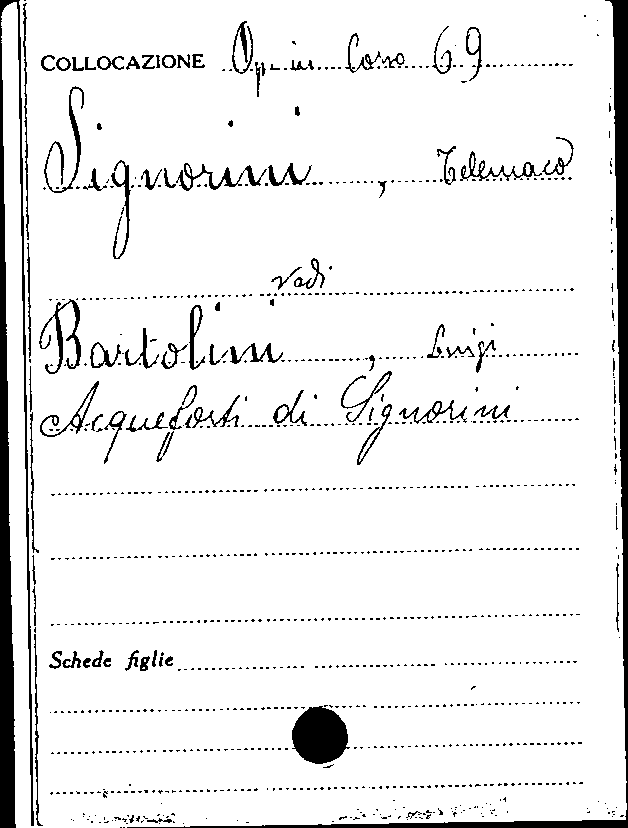 COLLOCAZIONE Op. in Corso 69
Signorini, Telemaco
Vedi
Bartolini, Luigi
Acqueforti di Signorini
Schede figlie